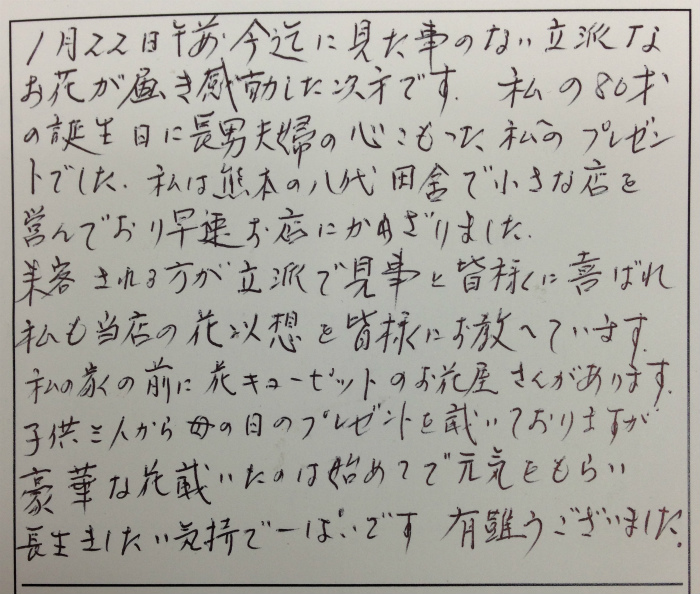 1月22日午前今迄に見た事のない立派な
お花が届き感動した次才です. 私の80才
の誕生日に長男夫婦の心こもった私へのプレゼン
トでした. 私は熊本の八代田舎で小さな店を
営んでおり早速お店にかざりました.
来客される方が立派で見事と皆様に喜ばれ
私も当店の花以想を皆様にお教へています.
私の家の前に花キューピットのお花屋さんがあります.
子供三人から母の日のプレゼントを戴いておりますが
豪華な花戴いたのは始めてで元気をもらい
長生きしたい気持で一ぱいです 有難うございました.